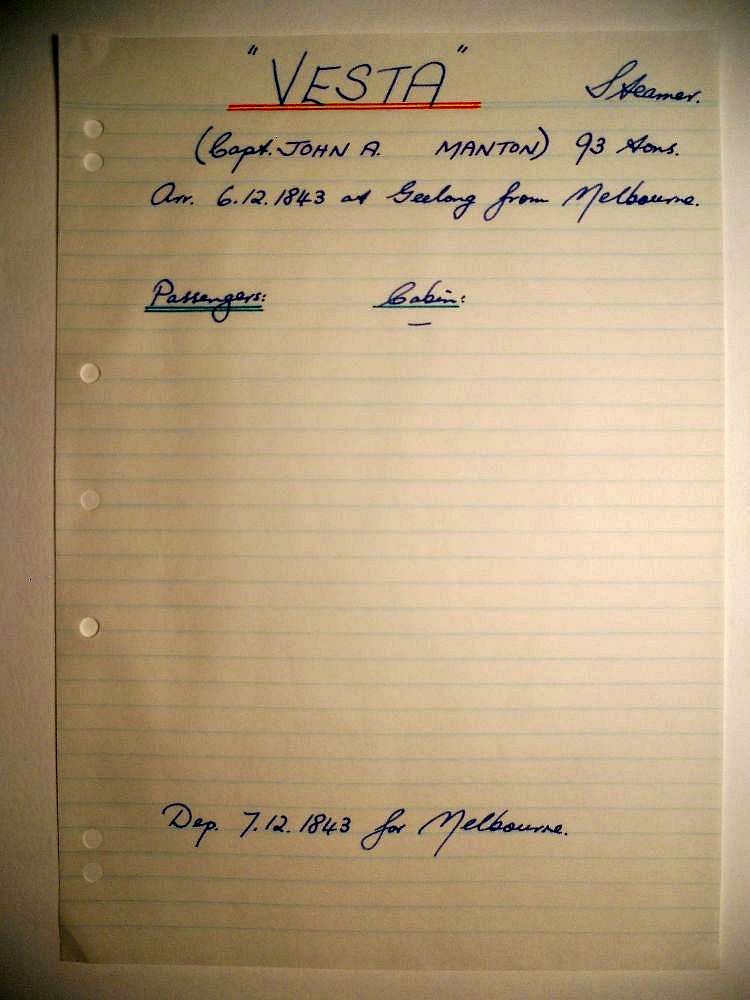 "VESTA" Steamer.
(Capt. JOHN A. MANTON) 93 tons.
Arr. 6.12.1843 at Geelong from Melbourne.
Passengers: Cabin:
—
Dep. 7.12.1843 for Melbourne.